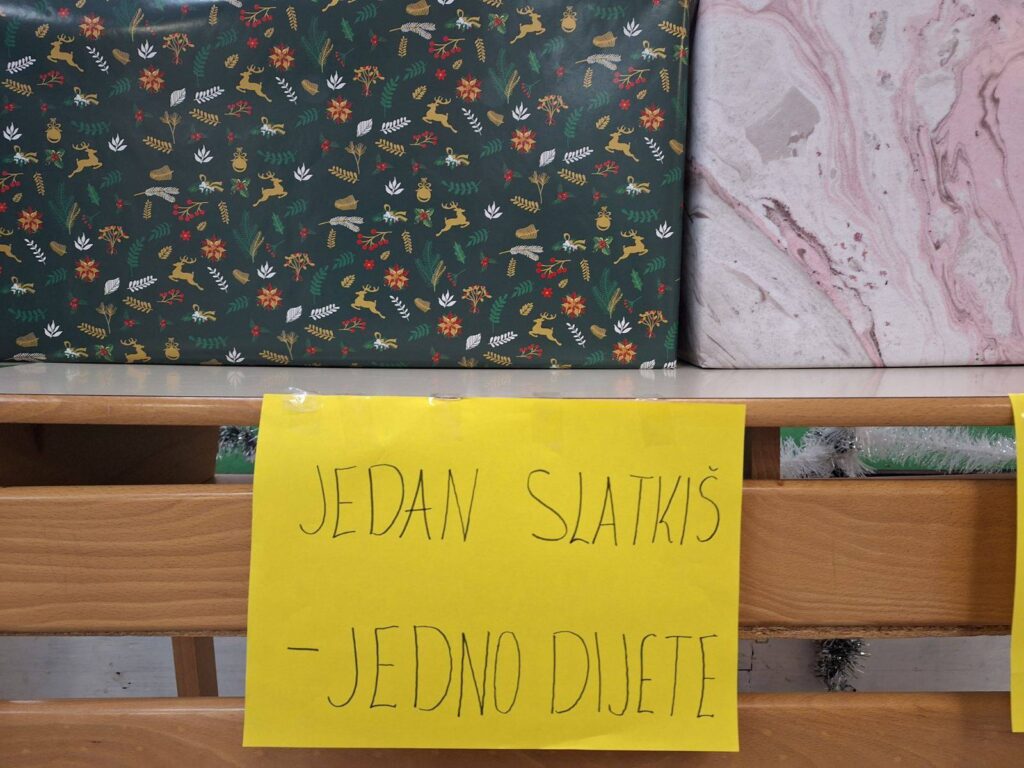 JEDAN SLATKIŠ
- JEDNO DIJETE